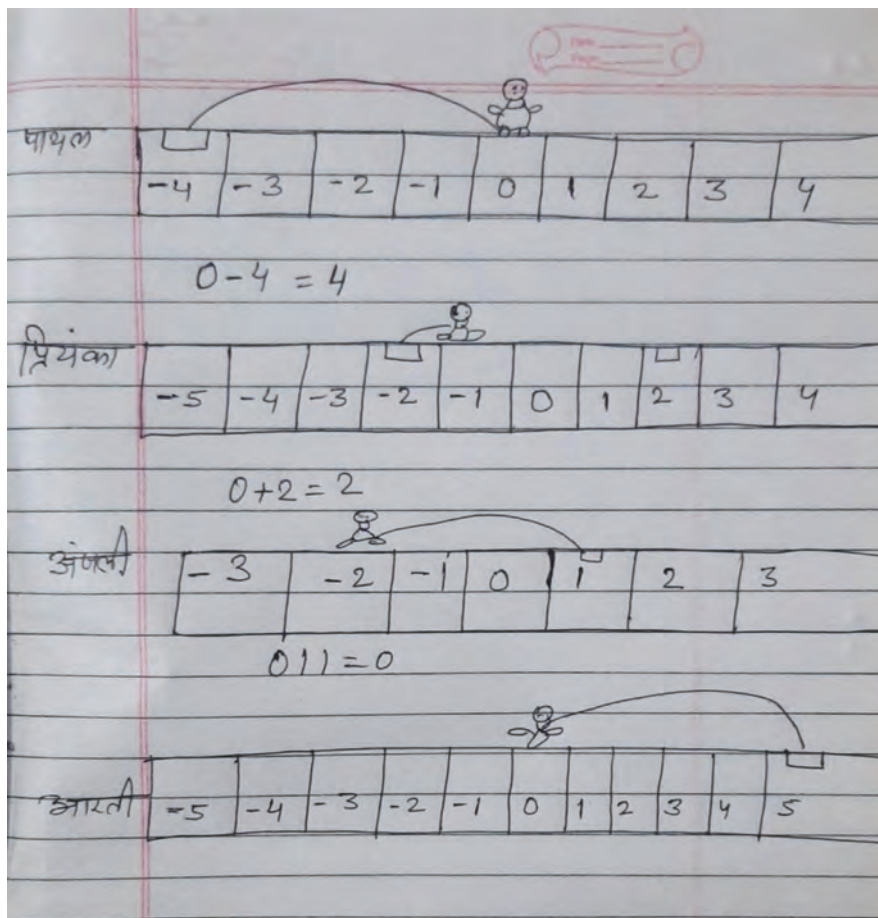 पायल
-4 -3 -2 -1 0 1 2 3 4
0-4 = 4
प्रियंका
-5 -4 -3 -2 -1 0 1 2 3 4
0+2=2
अंजली
-3 -2 -1 0 1 2 3
011=0
आरती
-5 -4 -3 -2 -1 0 1 2 3 4 5